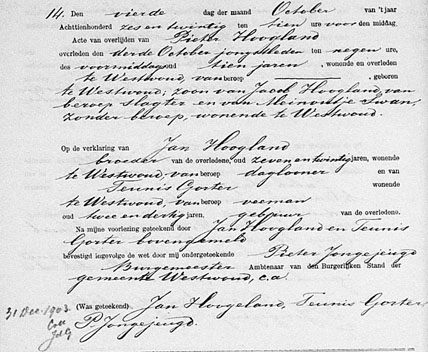 14. Den vierde dag der maand October van 't jaar
Achttienhonderd zes en twintig ten tien ure voor den middag,
Acte van overlijden van Pieter Hoogland
overleden den derde October jongstleden ten negen ure,
des voormiddags oud tien jaren, wonende en overleden
te Westwoud, van beroep ———, geboren
te Westwoud; zoon van Jacob Hoogland, van
beroep slagter en van Meinoutje Swan,
zonder beroep, wonende te Westwoud.
Op de verklaring van Jan Hoogland
broeder van de overledene, oud zeven en twintig jaren, wonende
te Westwoud, van beroep daglooner en van
Teunis Gorter wonende
te Westwoud, van beroep veeman
oud twee en dertig jaren, gebuur van de overledene.
Na mijne voorlezing geteekend door Jan Hoogland en Teunis
Gorter bovengemeld
bevestigd ingevolge de wet door mij ondergeteekende Pieter Jongejeugd
Burgemeester Ambtenaar van den Burgerlijken Stand der
gemeente Westwoud, c.a.
(Was geteekend) Jan Hoogeland, Teunis Gorter,
P. Jongejeugd.
31 Dec. 1903.